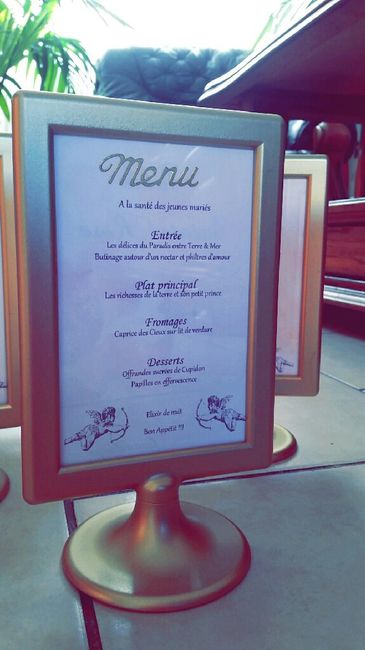 Menu
A la santé des jeunes mariés
Entrée
Les délices du Paradis entre Terre & Mer
Butinage autour d'un nectar et philtres d'amour
Plat principal
Les richesses de la terre et son petit prince
Fromages
Caprice des Cieux sur lit de verdure
Desserts
Offrandes sucrées de Cupidon
Papilles en effervescence
Elixir de nuit
Bon Appétit !!!